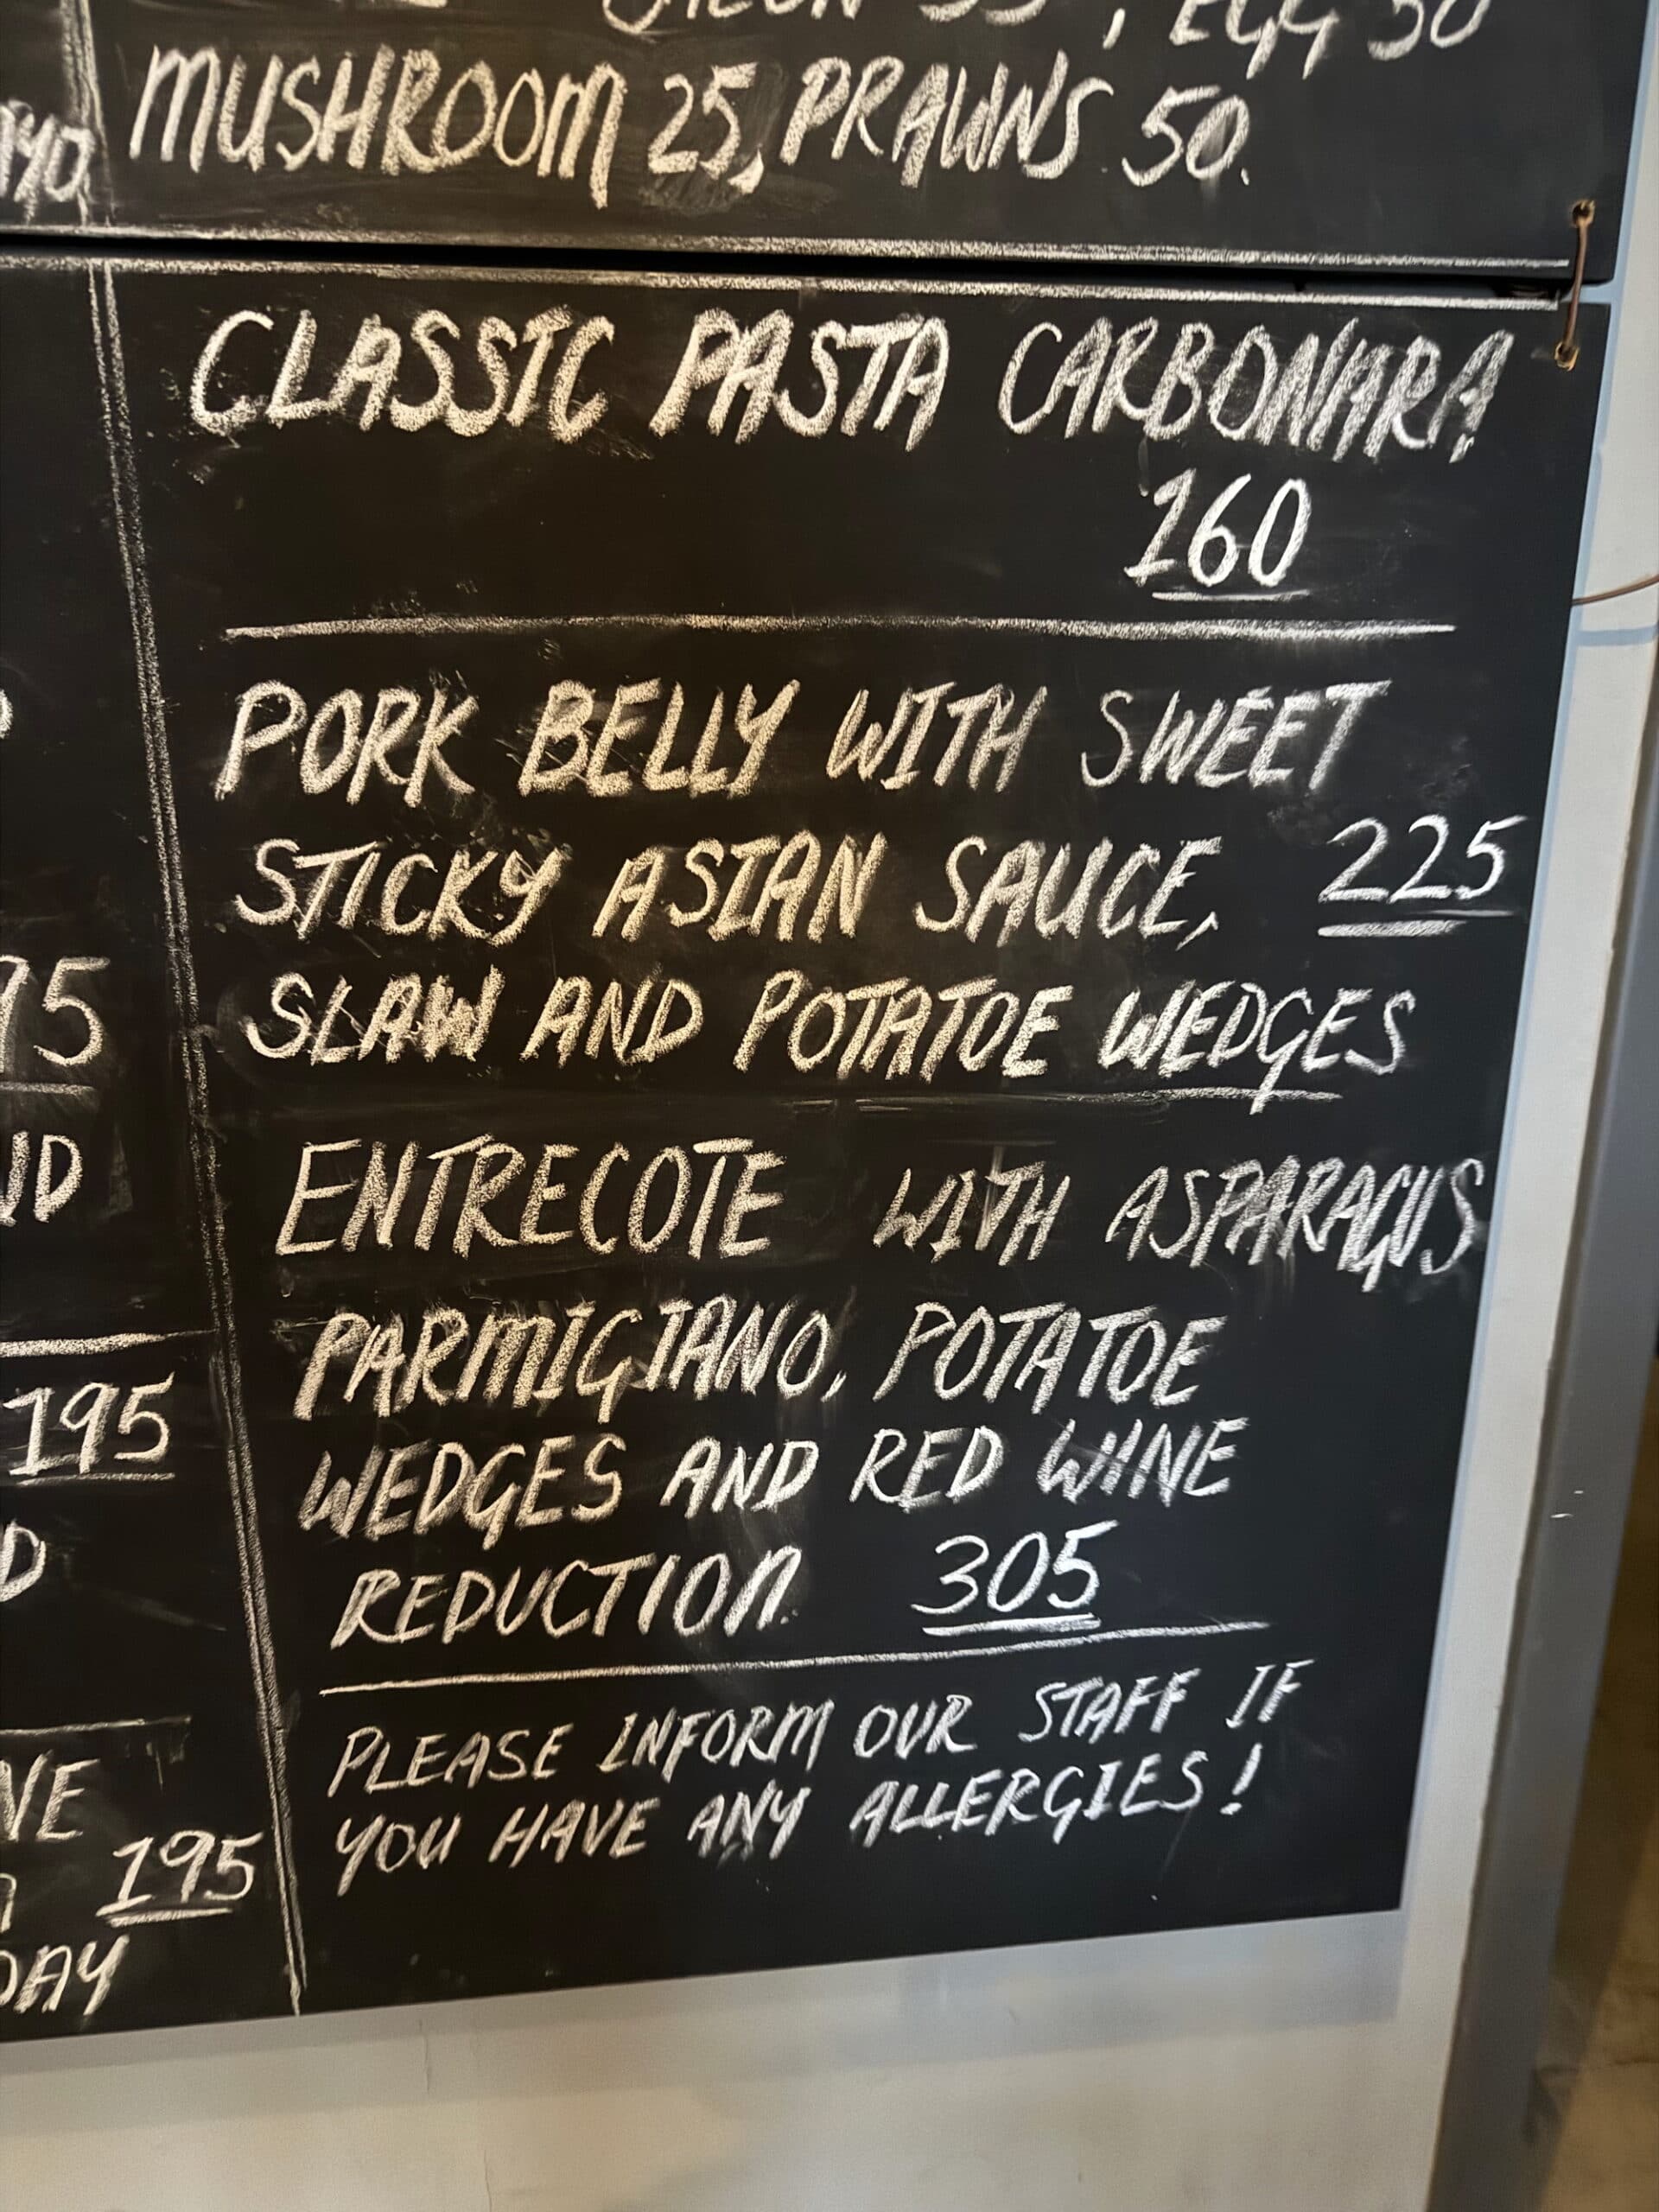 EGG 30
MUSHROOM 25, PRAWNS 50.
CLASSIC PASTA CARBONARA
160
PORK BELLY WITH SWEET
STICKY ASIAN SAUCE, 225
SLAW AND POTATOE WEDGES
ENTRECOTE WITH ASPARAGUS
PARMIGIANO, POTATOE
WEDGES AND RED WINE
REDUCTION. 305
PLEASE INFORM OUR STAFF IF
YOU HAVE ANY ALLERGIES!
195
195